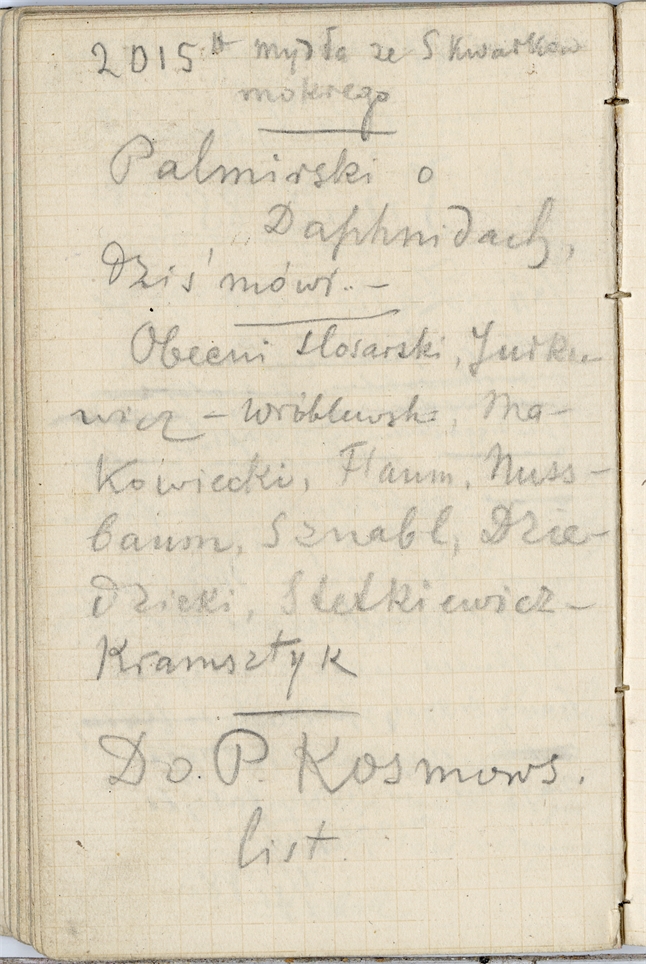 2015 tt mydła ze Skwarków
mokrego
Palmirski o
Daphnidach,
dziś mówi. –
Obecni Slosarski, Jurke-
wicz – Wróblewski, Ma-
kowiecki, Flaum, Nuss-
baum, Sznabl, Dzie-
dzicki, Stetkiewicz –
Kramsztyk
Do P. Kosmows.
list.